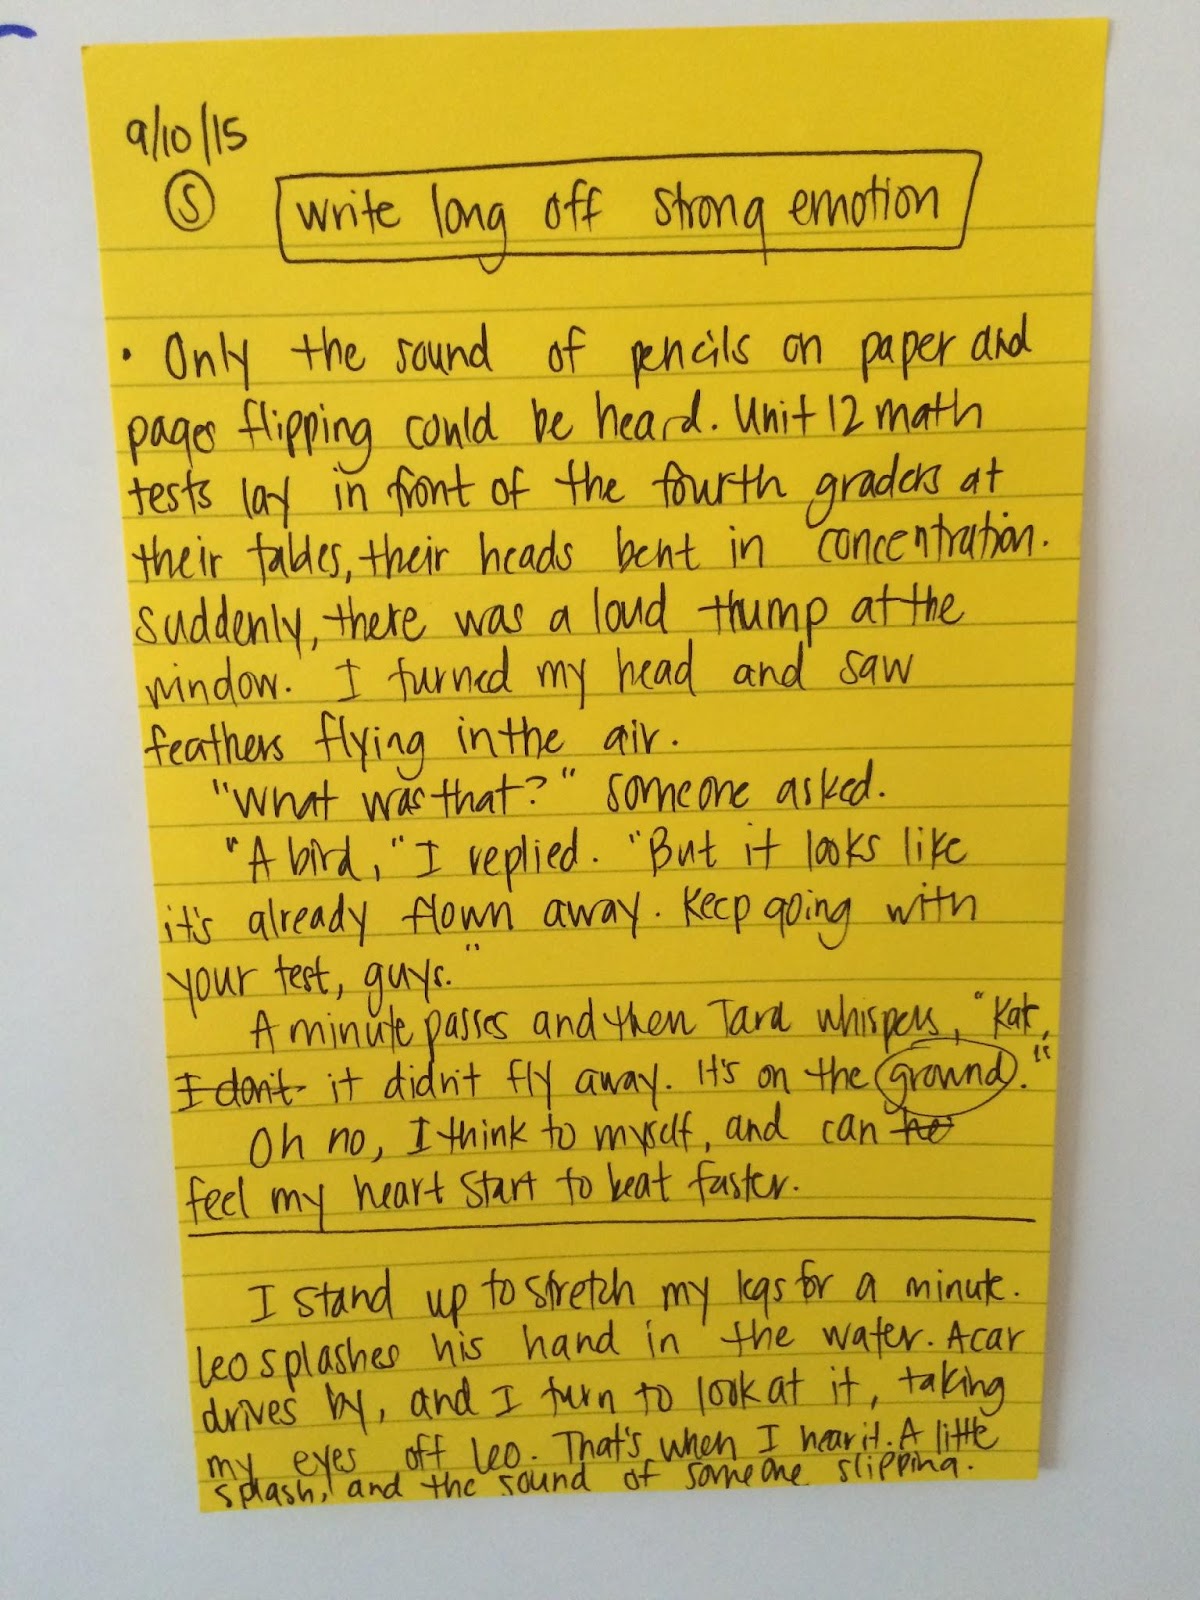 9/10/15
S
write long off strong emotion
• Only the sound of pencils on paper and
pages flipping could be heard. Unit 12 math
tests lay in front of the fourth graders at
their tables, their heads bent in concentration.
Suddenly, there was a loud thump at the
window. I turned my head and saw
feathers flying in the air.
"What was that?" someone asked.
"A bird," I replied. "But it looks like
it's already flown away. Keep going with
your test, guys."
A minute passes and then Tara whispers, "Kat,
I don't it didn't fly away. It's on the ground."
Oh no, I think to myself, and can he
feel my heart start to beat faster.
I stand up to stretch my legs for a minute.
Leo splashes his hand in the water. A car
drives by, and I turn to look at it, taking
my eyes off Leo. That's when I hear it. A little
splash, and the sound of someone slipping.